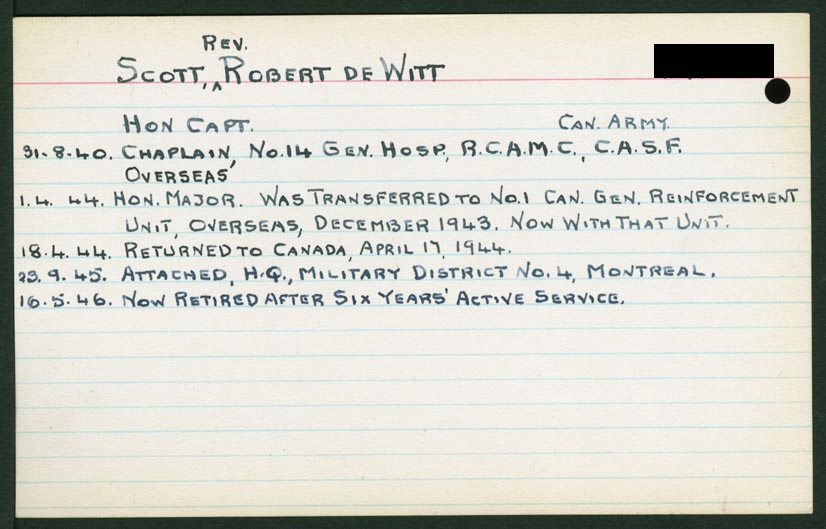 REV.
SCOTT, ^ ROBERT DE WITT
HON CAPT. CAN. ARMY.
31.8.40. CHAPLAIN, NO.14 GEN. HOSP., R.C.A.M.C., C.A.S.F.
OVERSEAS
1.4.44. HON. MAJOR. WAS TRANSFERRED TO NO.1 CAN. GEN. REINFORCEMENT
UNIT, OVERSEAS, DECEMBER 1943. NOW WITH THAT UNIT.
18.4.44. RETURNED TO CANADA, APRIL 17, 1944.
23.9.45. ATTACHED, H.Q., MILITARY DISTRICT NO.4, MONTREAL.
16.5.46. NOW RETIRED AFTER SIX YEARS' ACTIVE SERVICE.